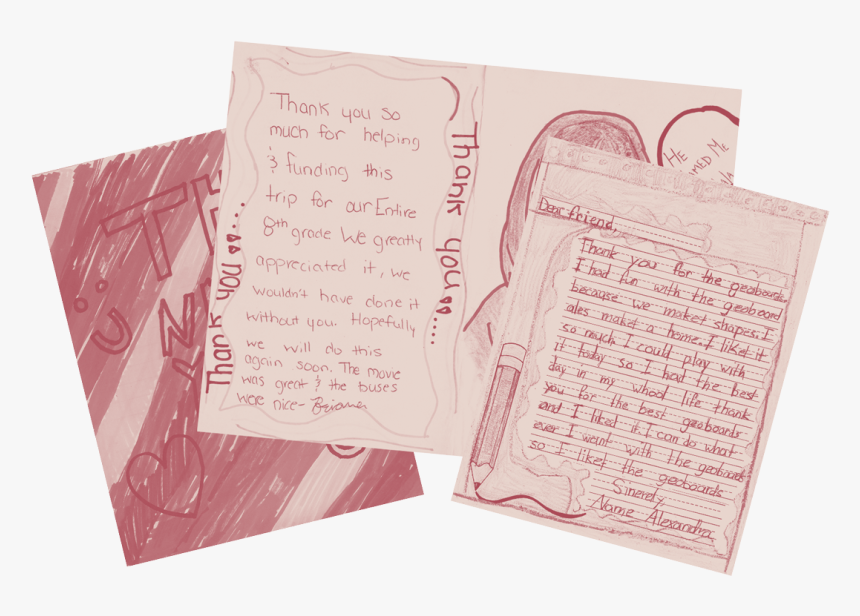 TH
Thank you
Thank you so
much for helping
& funding this
trip for our Entire
8th grade We greatly
appreciated it, we
wouldn't have done it
without you. Hopefully
we will do this
again soon. The movie
was great & the buses
were nice-
Thank you
HE
ME
Dear friend,
Thank you for the geoboards.
I had fun with the geoboard
because we maket shapes. I
ales maket a home. I liket it
so much I could play with
it today so I had the best
day in my whool life thank
you for the best geoboards
and I liked it I can do what
ever I went with the geoboards
so I liket the geoboards
Sincerely,
Name Alexandra